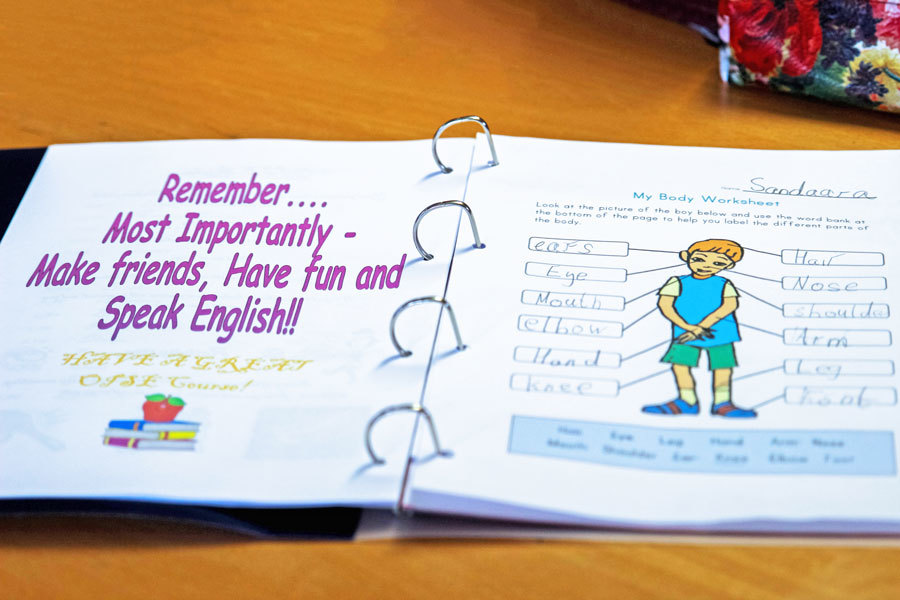 Remember....
Most Importantly -
Make friends, Have fun and
Speak English!!
HAVE A GREAT
OISE Course!
Name Sandaara
My Body Worksheet
Look at the picture of the boy below and use the word bank at
the bottom of the page to help you label the different parts of
the body.
ears
Hair
Eye
Nose
Mouth
shoulde
elbow
Arm
Hand
Leg
knee
Foot
Hair Eye Leg Hand Arm Nose
Mouth Shoulder Ear Knee Elbow Foot